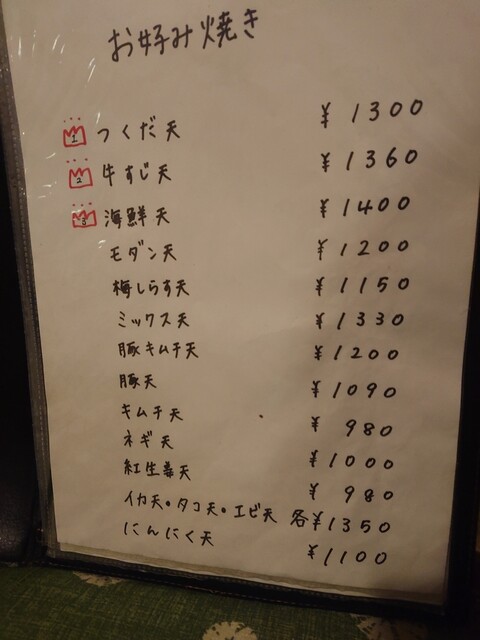 お好み焼き
1 つくだ天 ¥1300
2 牛すじ天 ¥1360
3 海鮮天 ¥1400
モダン天 ¥1200
梅しらす天 ¥1150
ミックス天 ¥1330
豚キムチ天 ¥1200
豚天 ¥1090
キムチ天 ¥980
ネギ天 ¥1000
紅生姜天 ¥980
イカ天・タコ天・エビ天 各¥1350
にんにく天 ¥1100